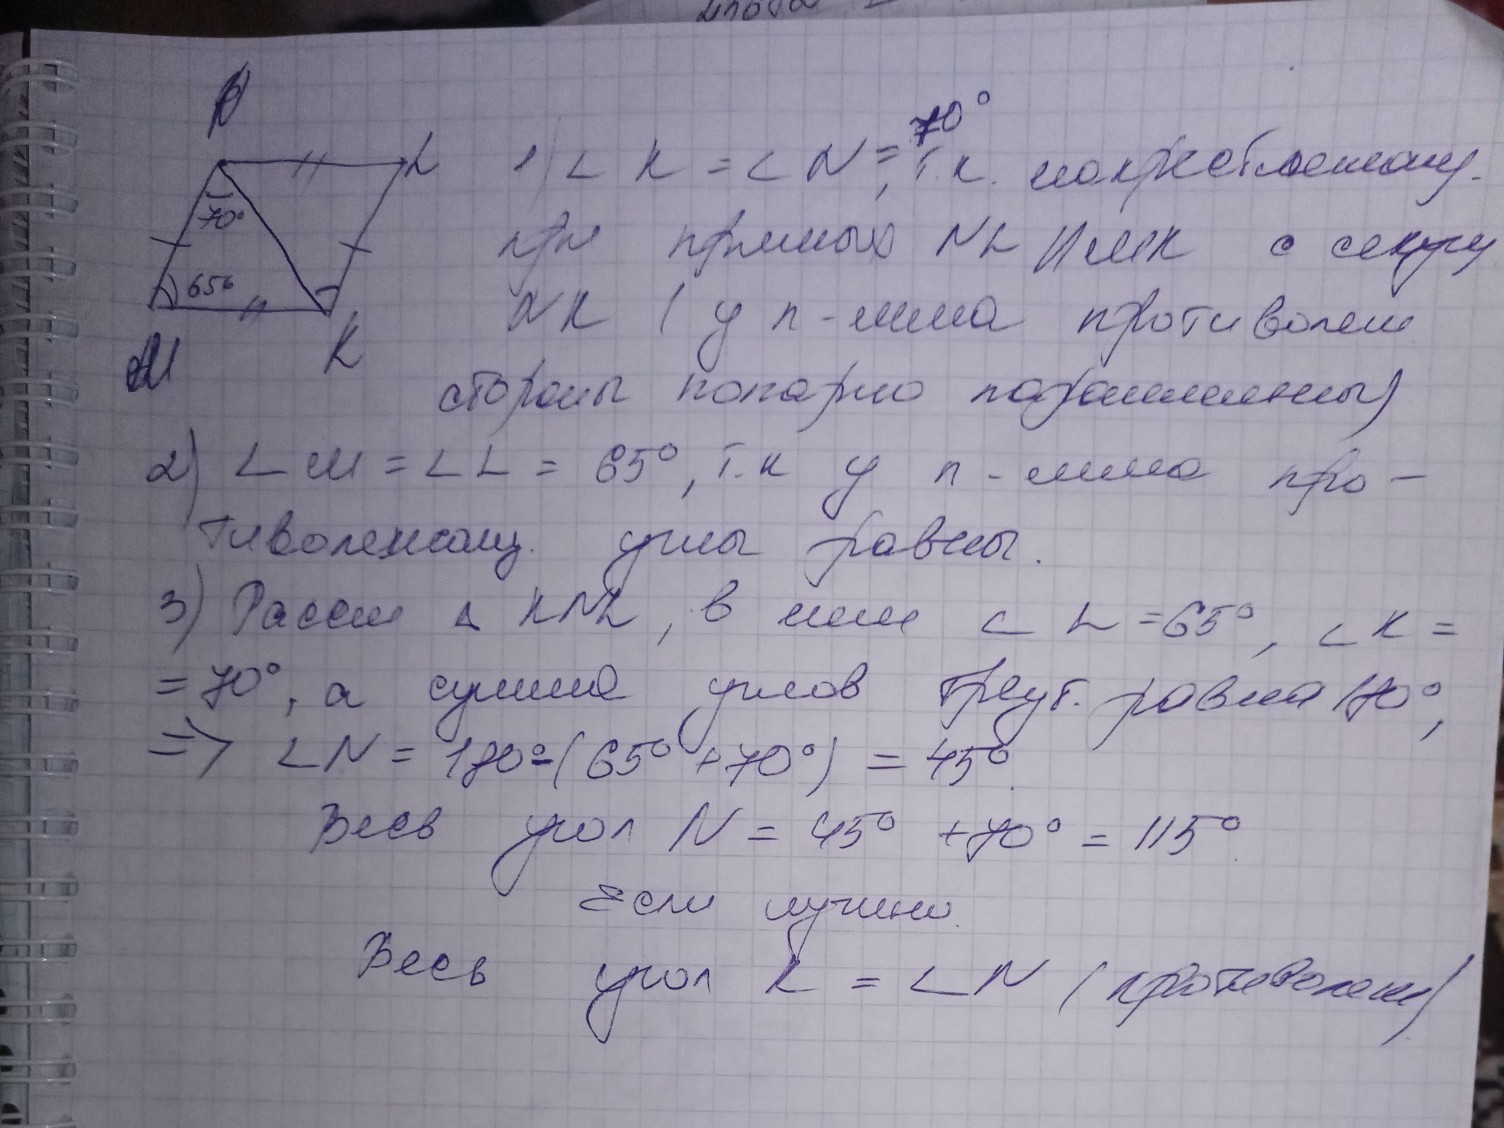 N
L
70°
65°
M
K
1) ∠ K = ∠ N = 70°, т.к. накрестлежащ.
при прямых NL || MK с секущ
NK ( у п-мма противолеж
стороны попарно параллельны)
2) ∠ M = ∠ L = 65°, т.к у п-мма про-
тиволежащ. углы равны.
3) Рассм Δ KNL, в нем ∠ L = 65°, ∠ K =
= 70°, а сумма углов треуг. равна 180°,
=> ∠ N = 180° - (65° + 70°) = 45°
Весь угол N = 45° + 70° = 115°
Если нужно.
Весь угол K = ∠ N (противолеж)